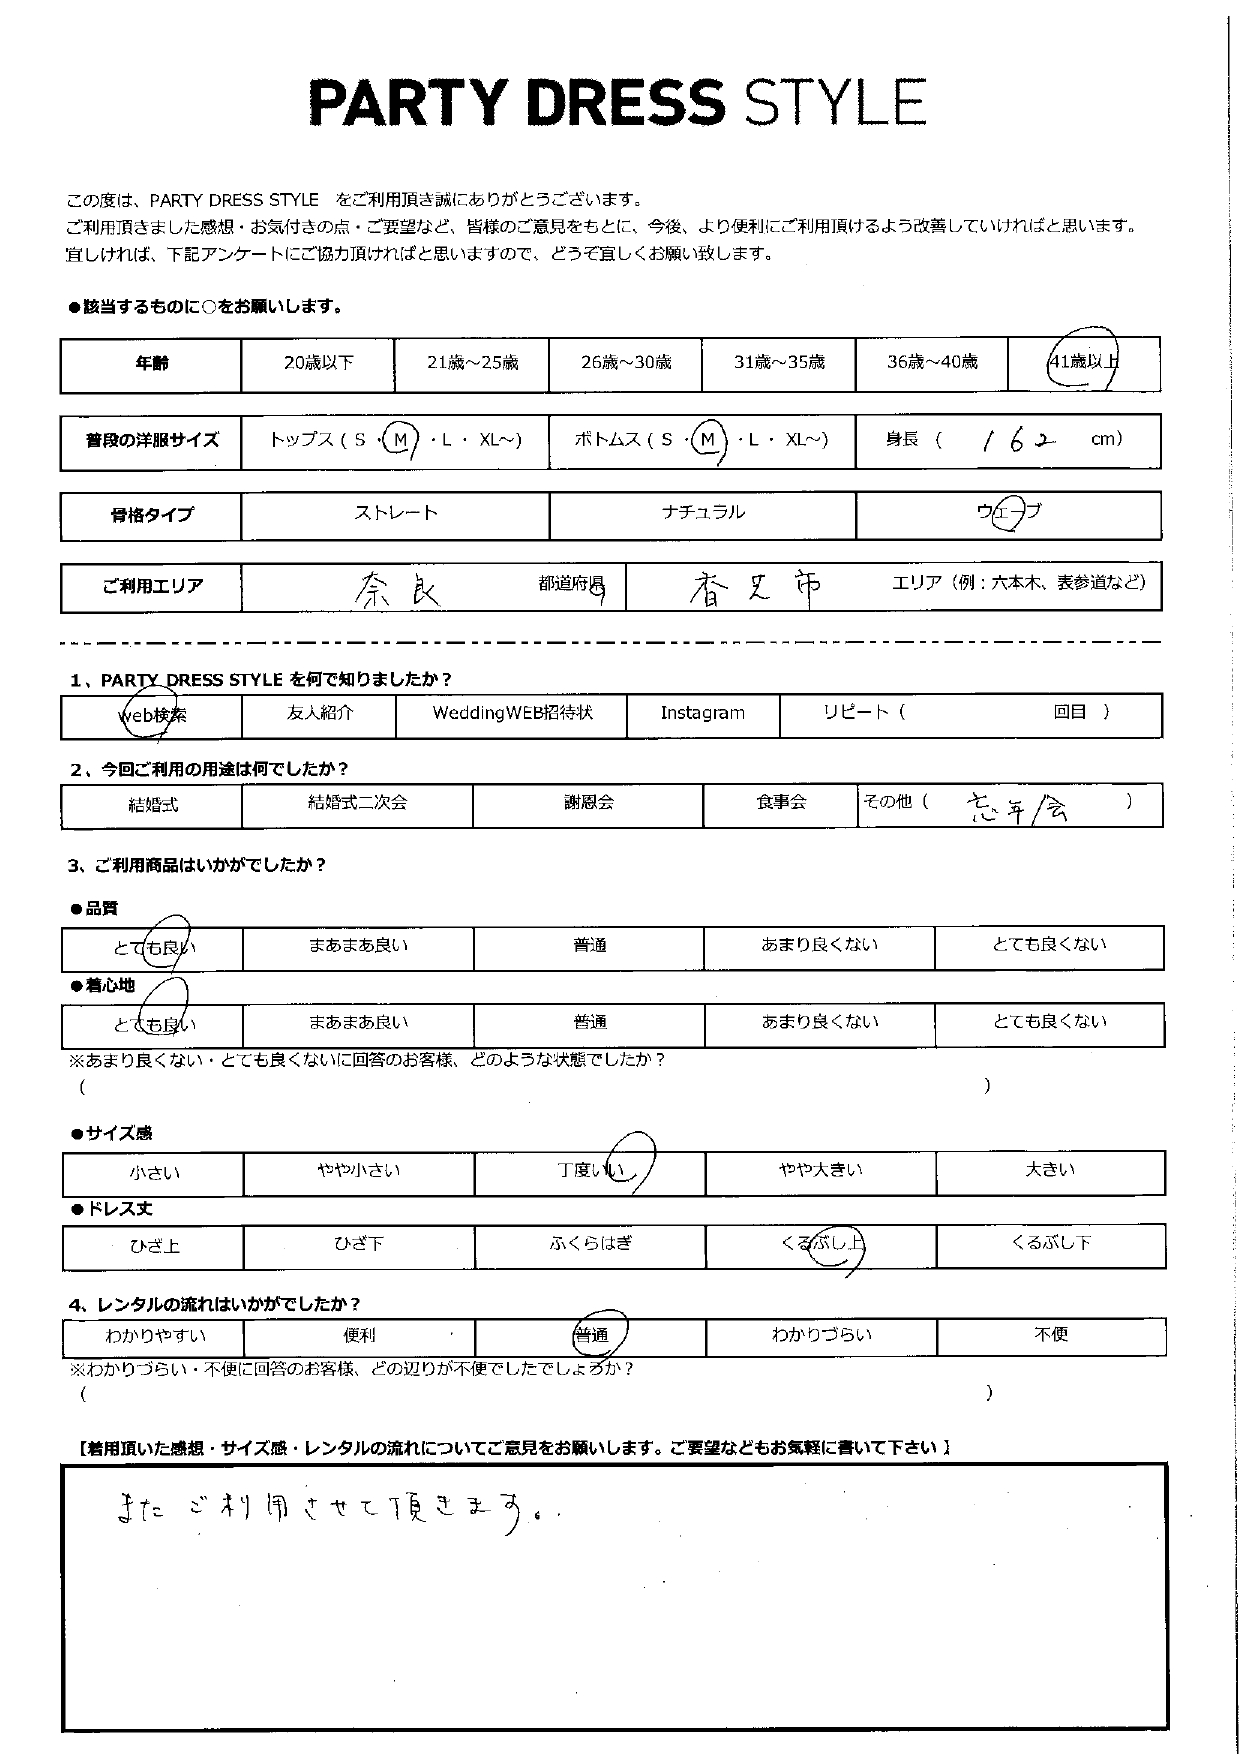 PARTY DRESS STYLE
この度は、PARTY DRESS STYLE をご利用頂き誠にありがとうございます。
ご利用頂きました感想・お気付きの点・ご要望など、皆様のご意見をもとに、今後、より便利にご利用頂けるよう改善していければと思います。
宜しければ、下記アンケートにご協力頂ければと思いますので、どうぞ宜しくお願い致します。
●該当するものに○をお願いします。
年齢 20歳以下 21歳～25歳 26歳～30歳 31歳～35歳 36歳～40歳 41歳以上
普段の洋服サイズ トップス ( S ・ M ・ L ・ XL～) ボトムス ( S ・ M ・ L ・ XL～) 身長 ( 162 cm)
骨格タイプ ストレート ナチュラル ウェーブ
ご利用エリア 奈良 都道府県 香芝市 エリア（例：六本木、表参道など）
1、PARTY DRESS STYLE を何で知りましたか？
web検索 友人紹介 WeddingWEB招待状 Instagram リピート（ 回目 ）
2、今回ご利用の用途は何でしたか？
結婚式 結婚式二次会 謝恩会 食事会 その他（ 忘年会 ）
3、ご利用商品はいかがでしたか？
●品質
とても良い まあまあ良い 普通 あまり良くない とても良くない
●着心地
とても良い まあまあ良い 普通 あまり良くない とても良くない
※あまり良くない・とても良くないに回答のお客様、どのような状態でしたか？
（ ）
●サイズ感
小さい やや小さい 丁度いい やや大きい 大きい
●ドレス丈
ひざ上 ひざ下 ふくらはぎ くるぶし上 くるぶし下
4、レンタルの流れはいかがでしたか？
わかりやすい 便利 普通 わかりづらい 不便
※わかりづらい・不便に回答のお客様、どの辺りが不便でしたでしょろか？
（ ）
【着用頂いた感想・サイズ感・レンタルの流れについてご意見をお願いします。ご要望などもお気軽に書いて下さい】
またご利用させて頂きます。